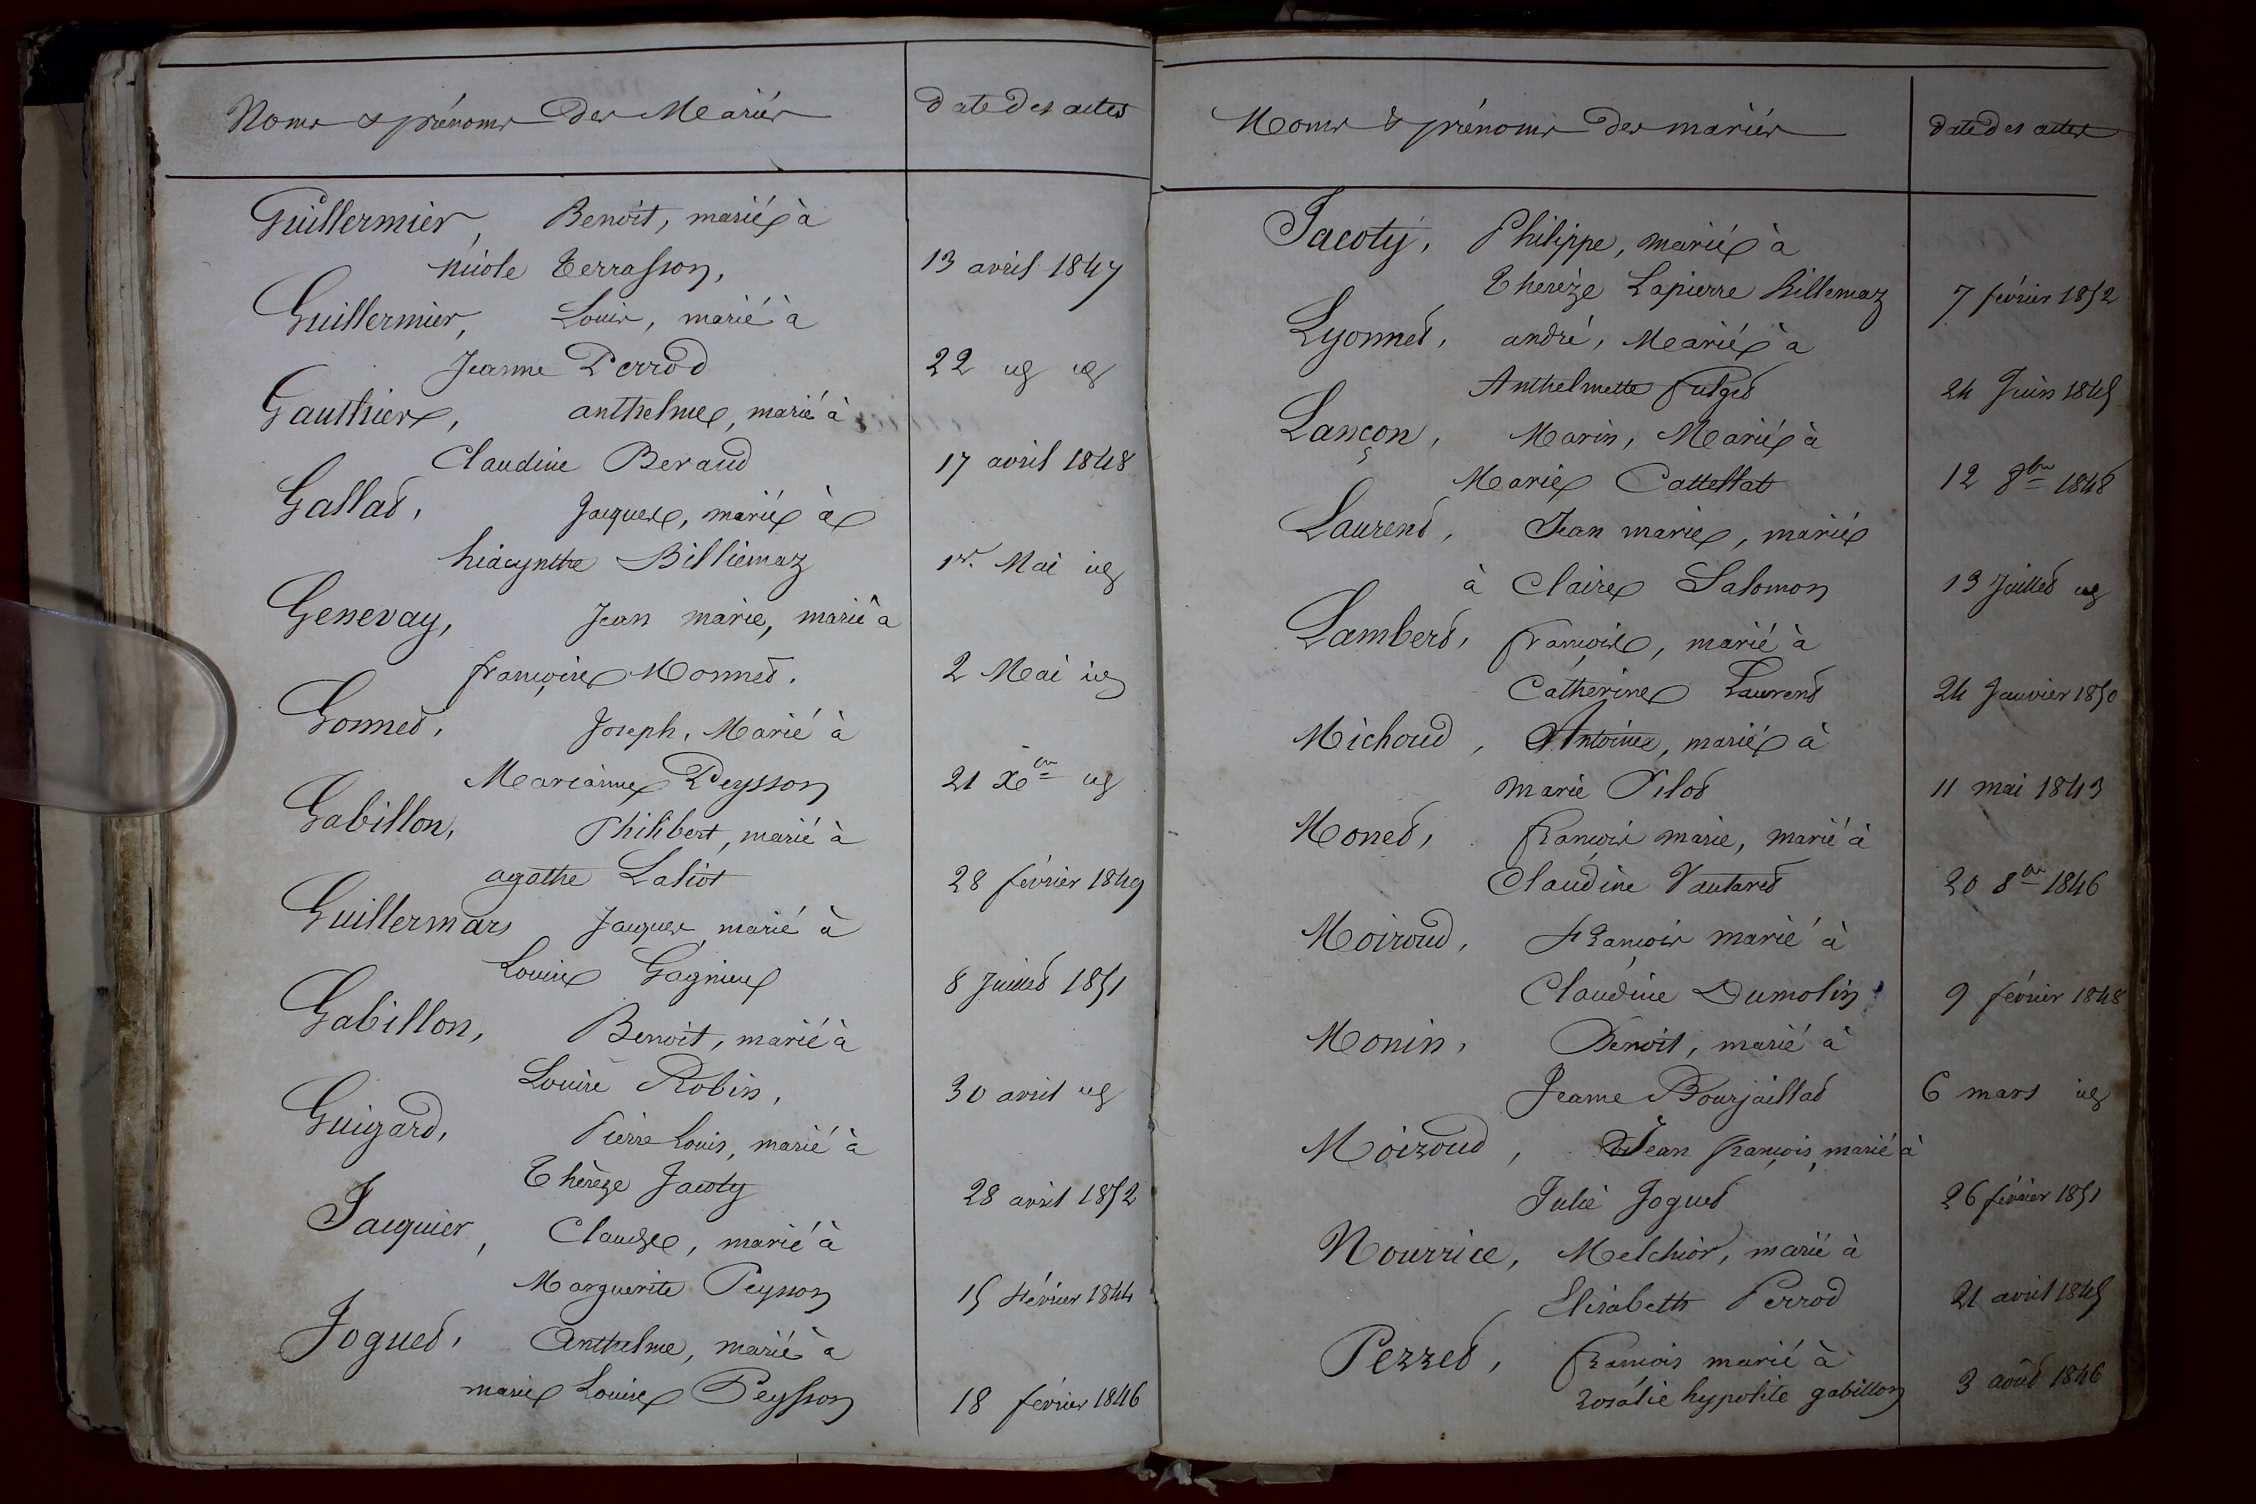 Noms & prénoms des Mariés
date des actes
Guillermier, Benoit, marié à
nicole Terrasson, 13 avril 1847
Guillermier, Louis, marié à
Jeanne Perrod 22 id id
Gauthier, anthelme, marié à
Claudine Beraud 17 avril 1848
Gallat, Jacques, marié à
hiacynthe Billiemaz 1er. Mai id
Genevay, Jean marie, marié à
françoise Monnet. 2 Mai id
Gonnet, Joseph, Marié à
Marianne Peysson 21 Xbre id
Gabillon, Philibert, marié à
agathe Laliot 28 février 1849
Guillermars Jacques marié à
Louise Gagnieux 8 Juillet 1851
Gabillon, Benoit, marié à
Louise Robin, 30 avril id
Guigard, Pierre Louis, marié à
Thérèze Jacoty 28 avril 1852
Jacquier, Claude, marié à
Marguerite Peysson 15 février 1844
Joguet, Anthelme, marié à
marie Louise Peysson 18 février 1846
Noms & prénoms des mariés
date des actes
Jacoty, Philippe, marié à
Therèze Lapierre Billemaz 7 février 1852
Lyonnet, andré, Marié à
Anthelmette 24 Juin 1845
Lançon, Marin, Marié à
Marie Cattellat 12 8bre 1848
Laurent, Jean marie, marié
à Claire Salomon 13 Juillet id
Lambert, françois, marié à
Catherine Laurent 24 Janvier 1850
Michoud, Antoine, marié à
Marie Pilot 11 mai 1843
Monet, françois marie, marié à
Claudine Vautaret 20 8bre 1846
Moiroud, François marié à
Claudine Dumolin 9 février 1848
Monin, Benoit, marié à
Jeanne Bourjaillat 6 mars id
Moiroud, Jean françois, marié à
Julie Joguet 26 février 1851
Nourrice, Melchior, marié à
Elisabeth Perrod 21 avril 1845
Perret, françois marié à
rosalie hypolite gabillon 3 août 1846